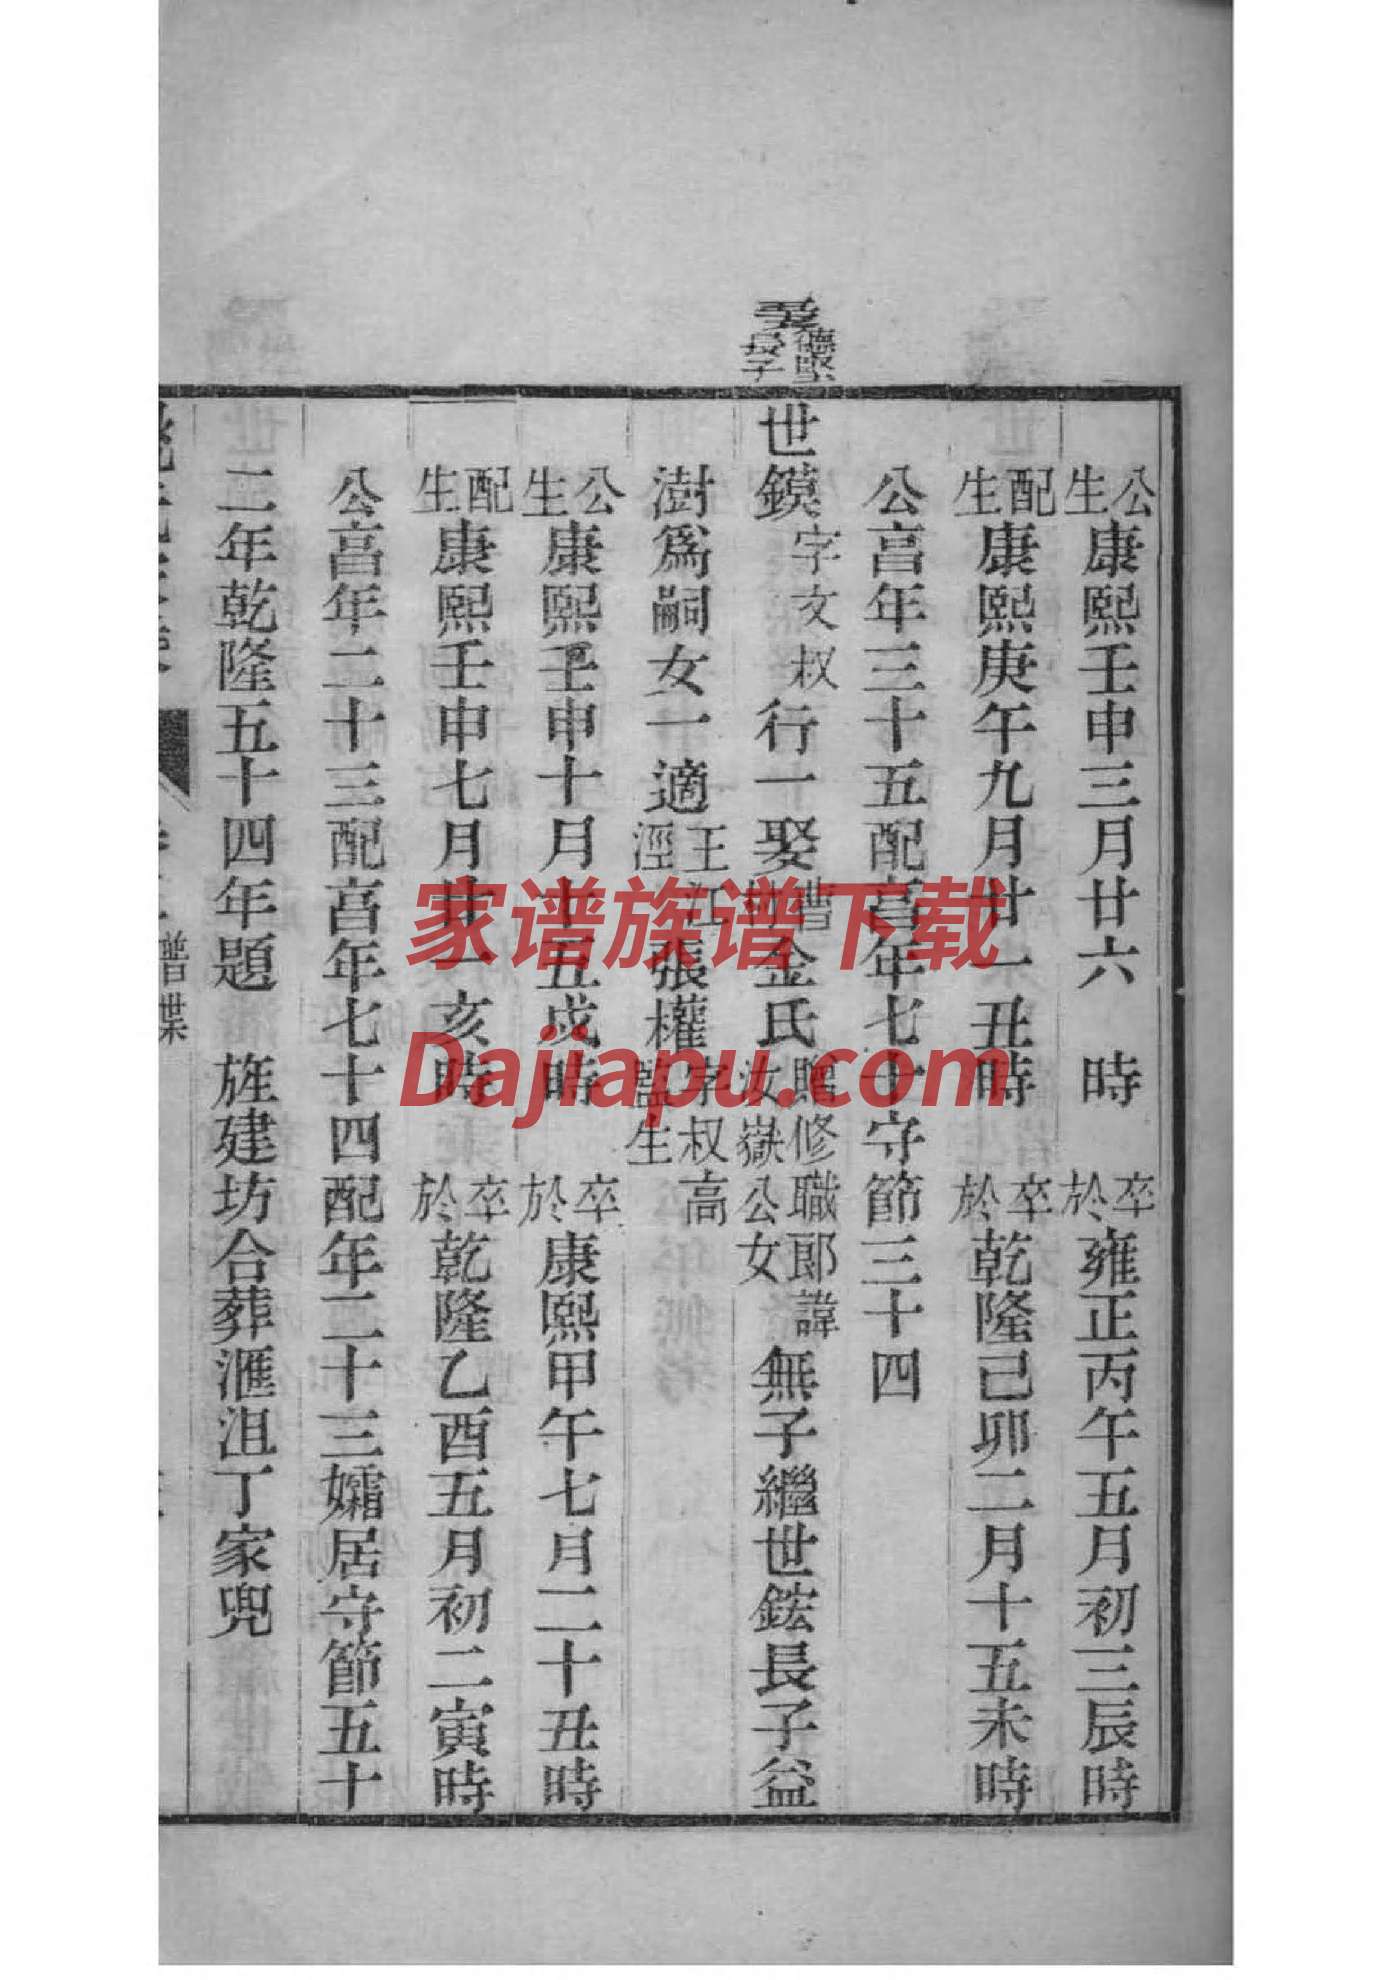 公生康熙壬申三月廿六　時　卒於雍正丙午五月初三辰時
配生康熙庚午九月廿一丑時　卒於乾隆己卯二月十五未時
公亯年三十五配亯年七十守節三十四
德堅長子
世鏌字文叔行一娶金氏贈修職郎諱汝嶽公女無子繼世鋐長子益
澍爲嗣女一適王江涇張權孝叔高監生
公生康熙壬申十月十五戌時　卒於康熙甲午七月二十丑時
配生康熙壬申七月廿一亥時　卒於乾隆乙酉五月初二寅時
公亯年二十三配亯年七十四配年二十三孀居守節五十
二年乾隆五十四年題　旌建坊合葬滙沮丁家兜
譜牒
家谱族谱下载
Dajiapu.com